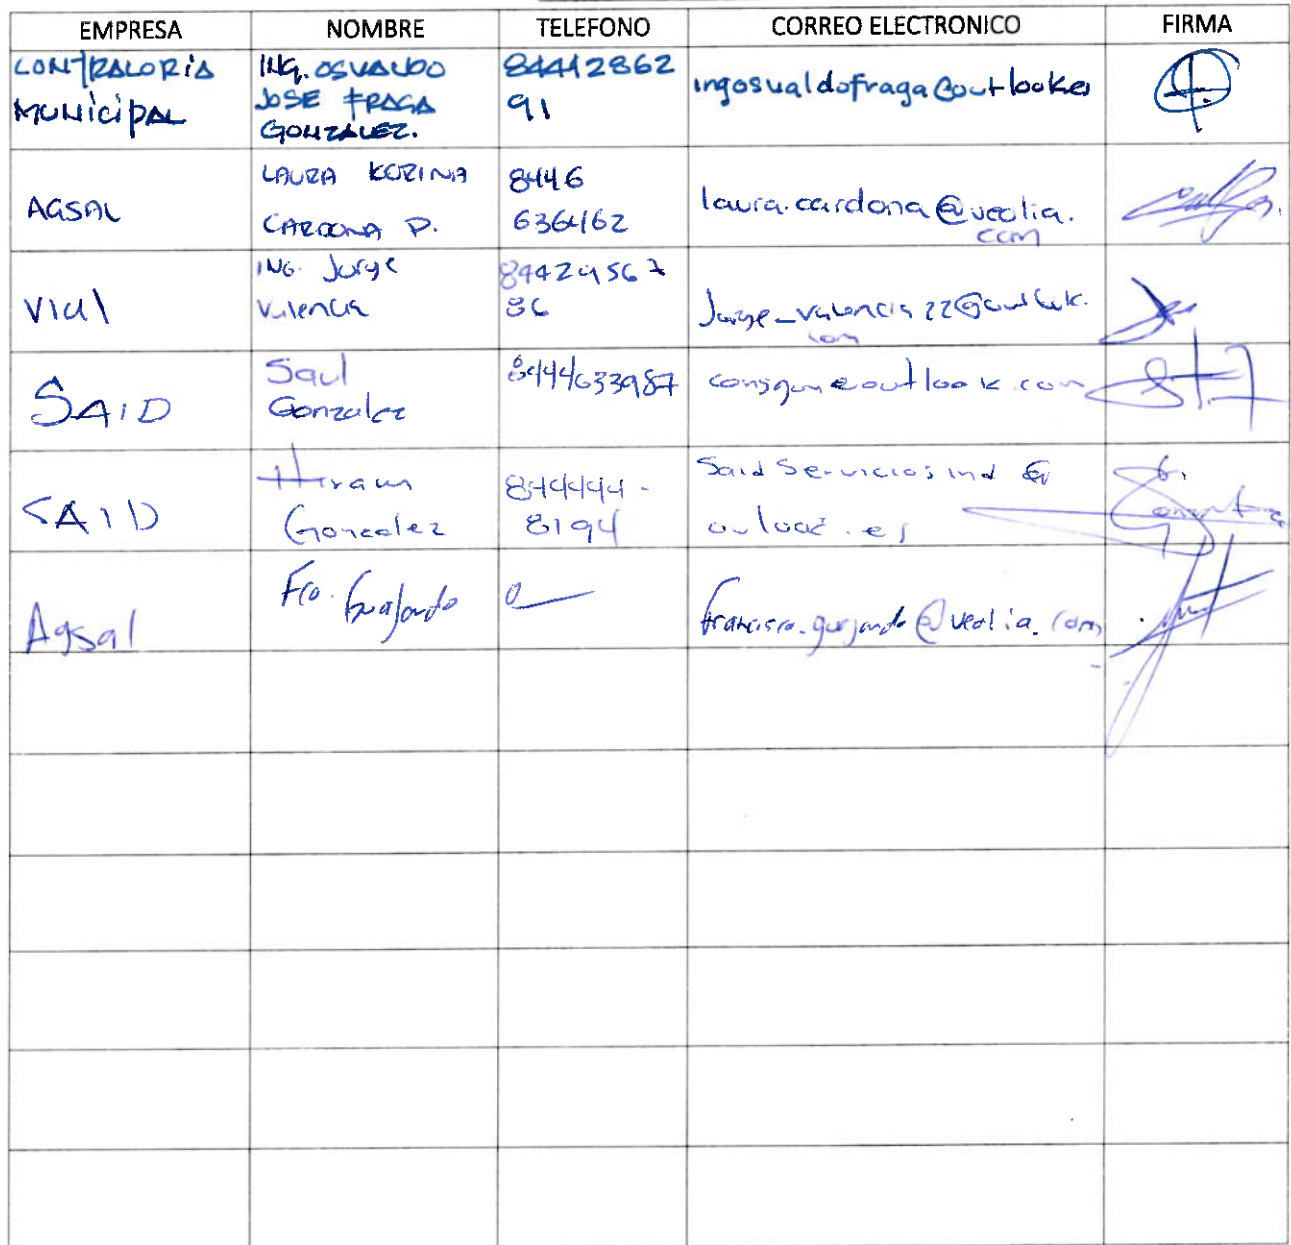 EMPRESA NOMBRE TELEFONO CORREO ELECTRONICO FIRMA
CONTRALORIA MUNICIPAL
ING. OSVALDO
JOSE FRAGA
GONZALEZ.
84412862
91
ingosvaldofraga@outlook.es
AGSAL
LAURA KORINA
CARDONA P.
8446
6364162
laura.cardona@veolia.
com
Vial
ING. Jorge
Valencia
84429567
86
Jorge_valencia22@outlook.
com
SAID
Saul
Gonzalez
8444633987
@outlook.com
SAID
Hiram
Gonzalez
844444-
8194
Said Servicios ind @
outlook.es
Agsal
Fco. Guajardo
francisco.guajardo@veolia.com